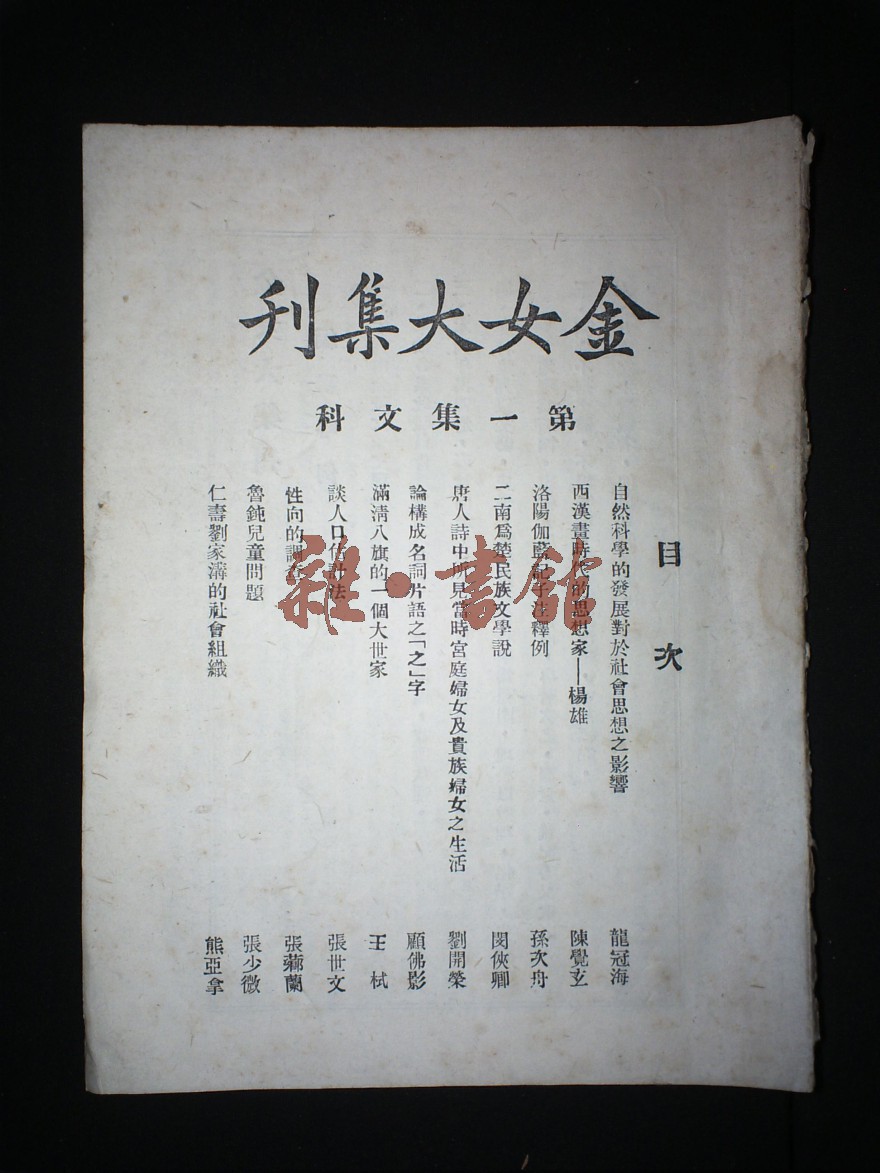 金女大集刊
第一集文科
目次
自然科學的發展對於社會思想之影響 龍冠海
西漢畫時代的思想家——楊雄 陳覺玄
洛陽伽藍記子注釋例 孫次舟
二南為楚民族文學說 閔俠卿
唐人詩中所見當時宮庭婦女及貴族婦女之生活 劉開榮
論構成名詞片語之「之」字 顧佛影
滿清八旗的一個大世家 王栻
談人口估計法 張世文
性向的調 張蘭
魯鈍兒童問題 張少微
仁壽劉家溝的社會組織 熊亞拿
雜·書館